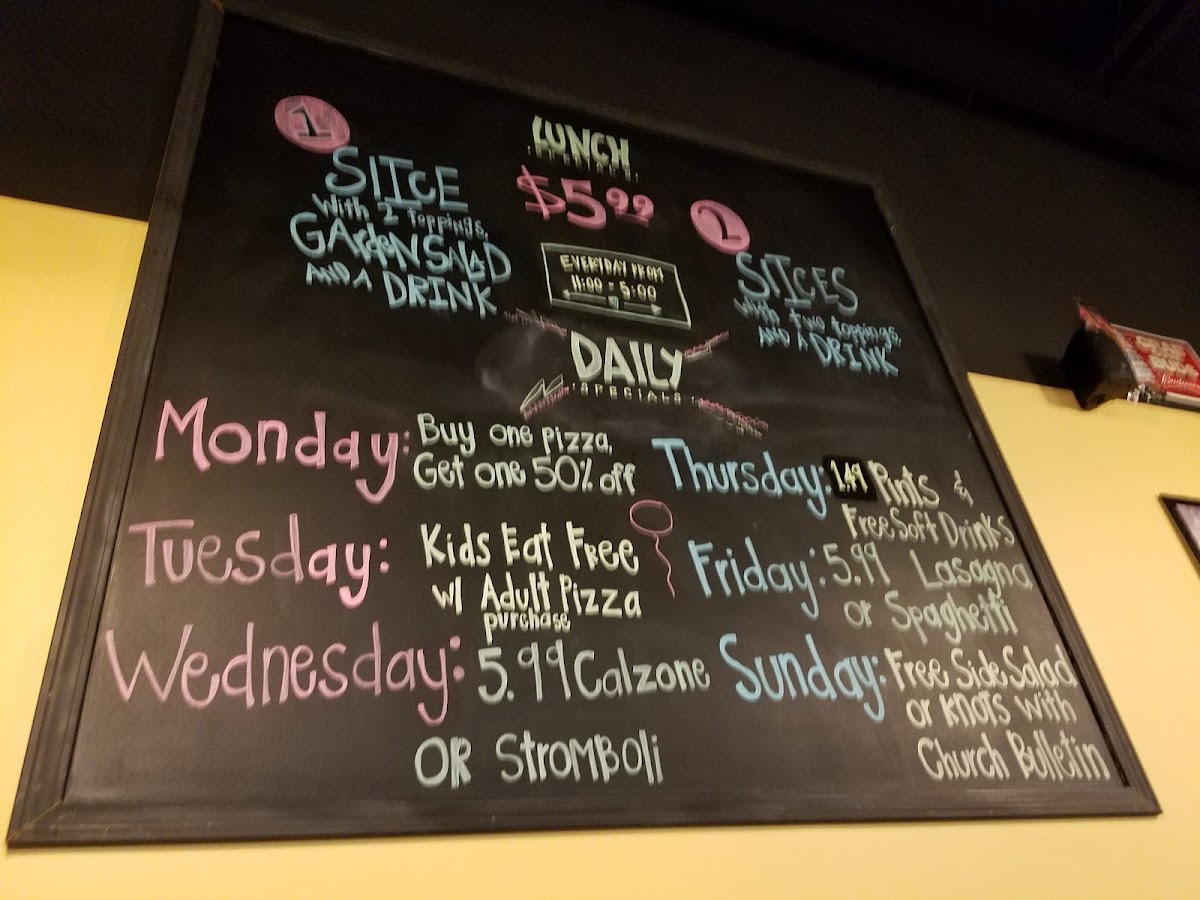 LUNCH
SPECIALS!
$5.99
1
SLICE
With 2 toppings,
GARdeN SALAD
AND A DRINK
2
SLICES
with two toppings,
AND A DRINK
EVERYDAY FROM
11:00 - 5:00
DAILY
SPECIALS
Monday: Buy one pizza,
Get one 50% off
Tuesday: Kids Eat Free
w/ Adult Pizza
purchase
Wednesday: 5.99 Calzone
OR StROMBoli
Thursday: 1.49 Pints &
Free Soft Drinks
Friday: 5.99 Lasagna
or Spaghetti
Sunday: Free Side Salad
or KNOTS With
Church Bulletin